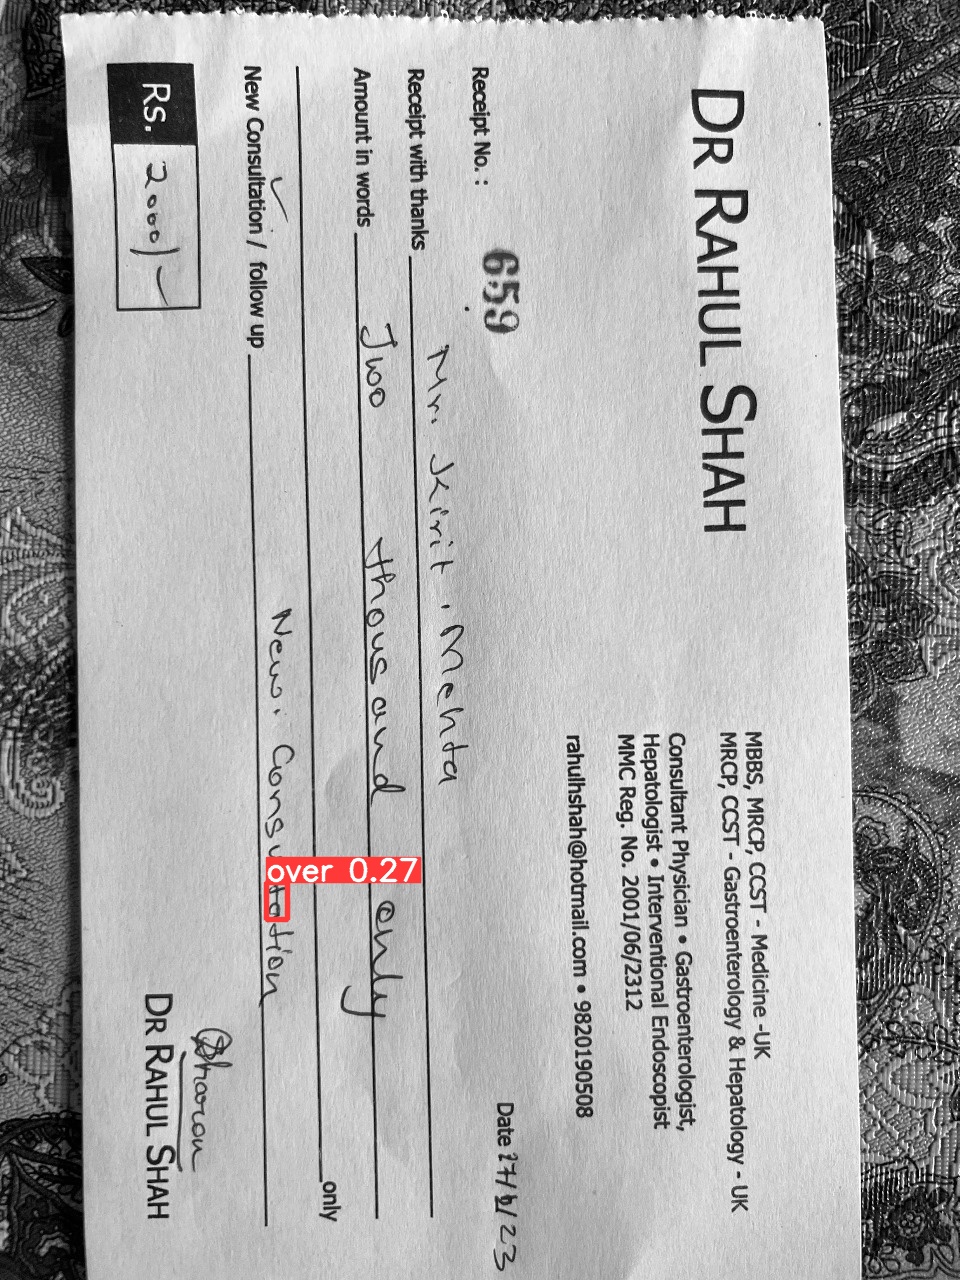 DR RAHUL SHAH
MBBS, MRCP, CCST - Medicine -UK
MRCP, CCST - Gastroenterology & Hepatology - UK
Consultant Physician • Gastroenterologist,
Hepatologist • Interventional Endoscopist
MMC Reg. No. 2001/06/2312
rahulhshah@hotmail.com • 9820190508
Receipt No. : 659 Date 27/6/23
Receipt with thanks Mr. Kirit. Mehta
Amount in words Two thousand only
only
New Consultation / follow up New. Consultation
over 0.27
Rs. 2000/-
Sharon
DR RAHUL SHAH